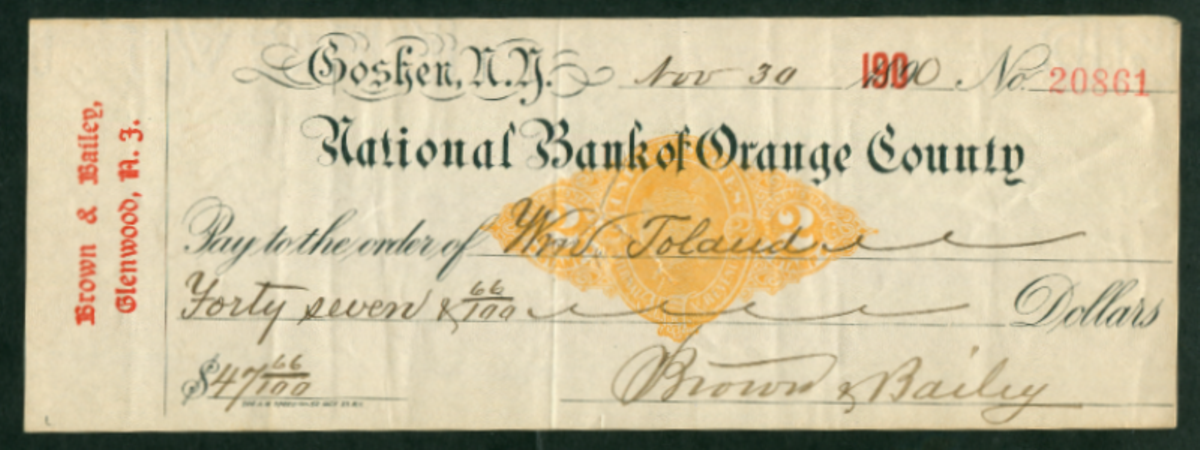 Brown & Bailey,
Glenwood, N. J.
Goshen, N.Y. Nov 30 1900 No. 20861
National Bank of Orange County
Pay to the order of Wm. Toland
Forty seven & 66/100 Dollars
$47 66/100
Brown & Bailey
2 2